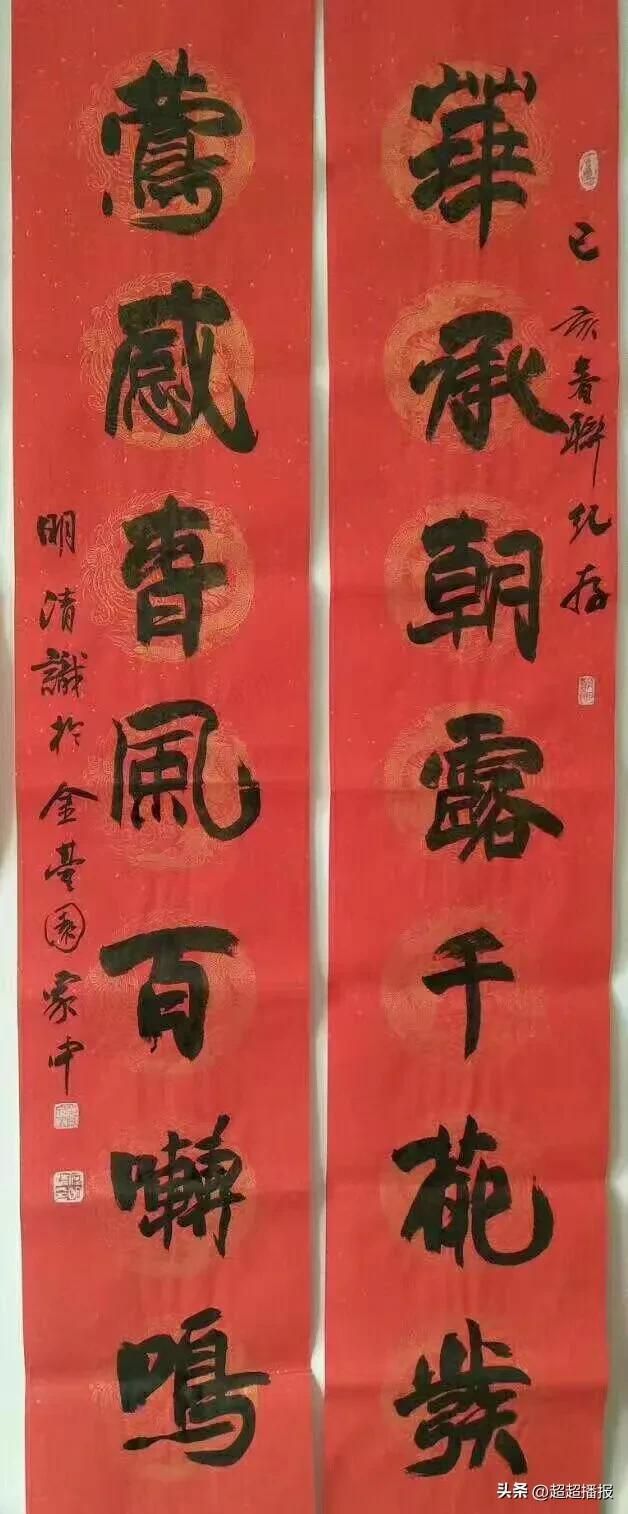 己亥春聯紀存
華承朝露千花發
鶯感春風百囀鳴
明清識於金臺園家中
头条 @超超播报